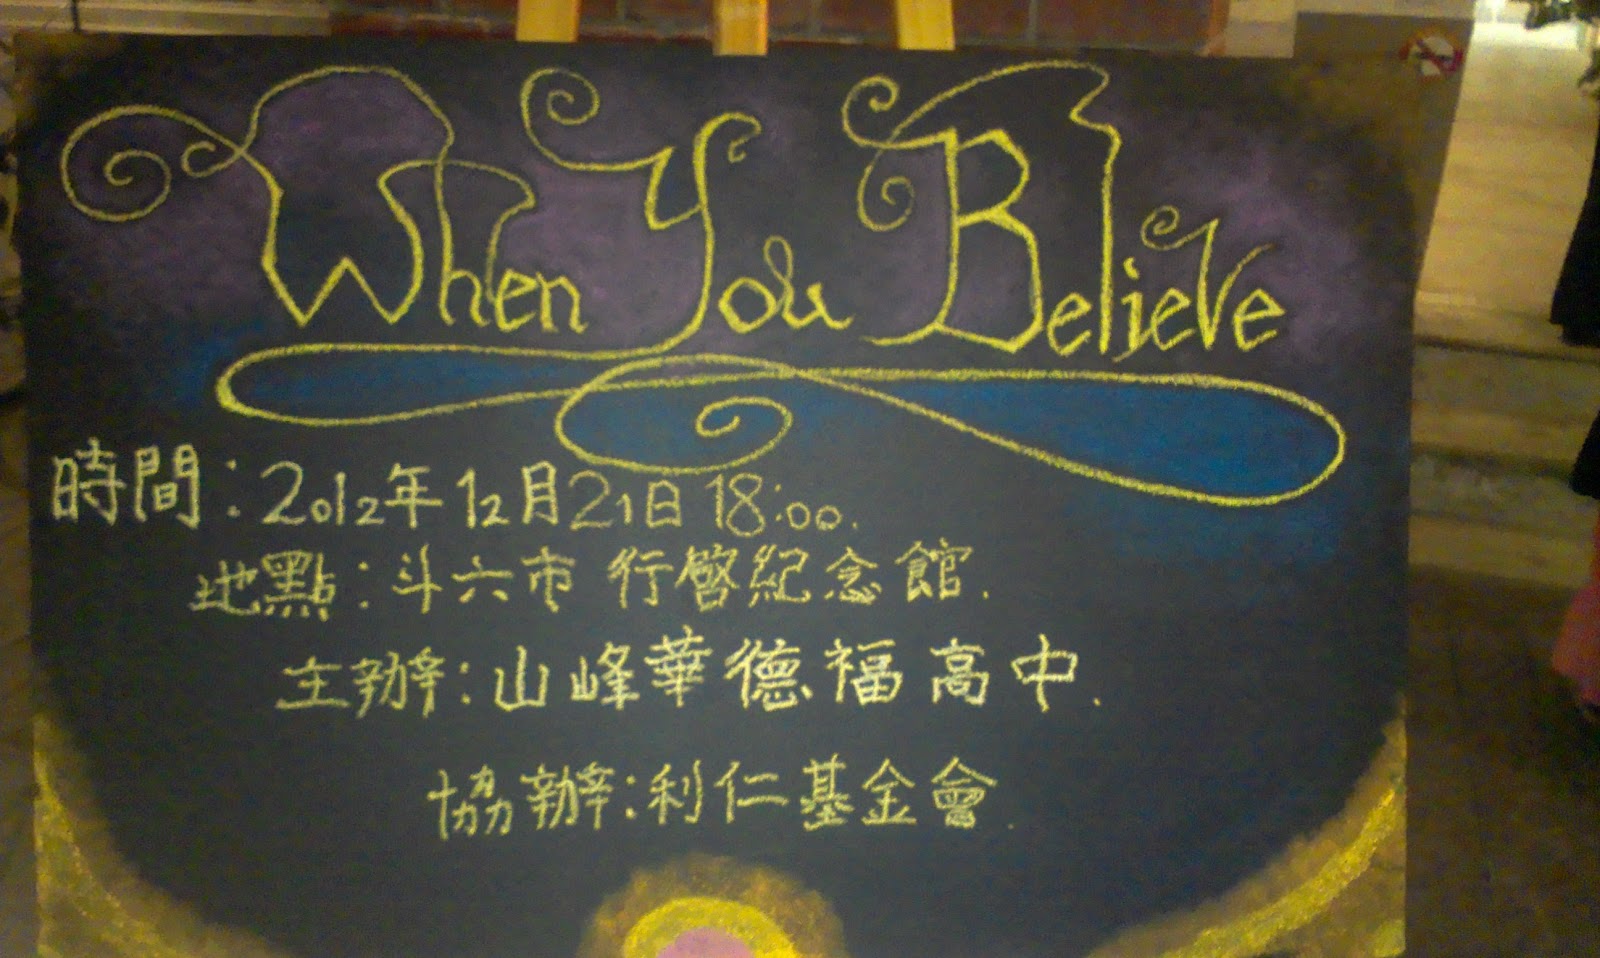 When You Believe
時間：2012年12月21日 18:00.
地點：斗六市 行啓紀念館.
主辦：山峰華德福高中.
協辦：利仁基金會.